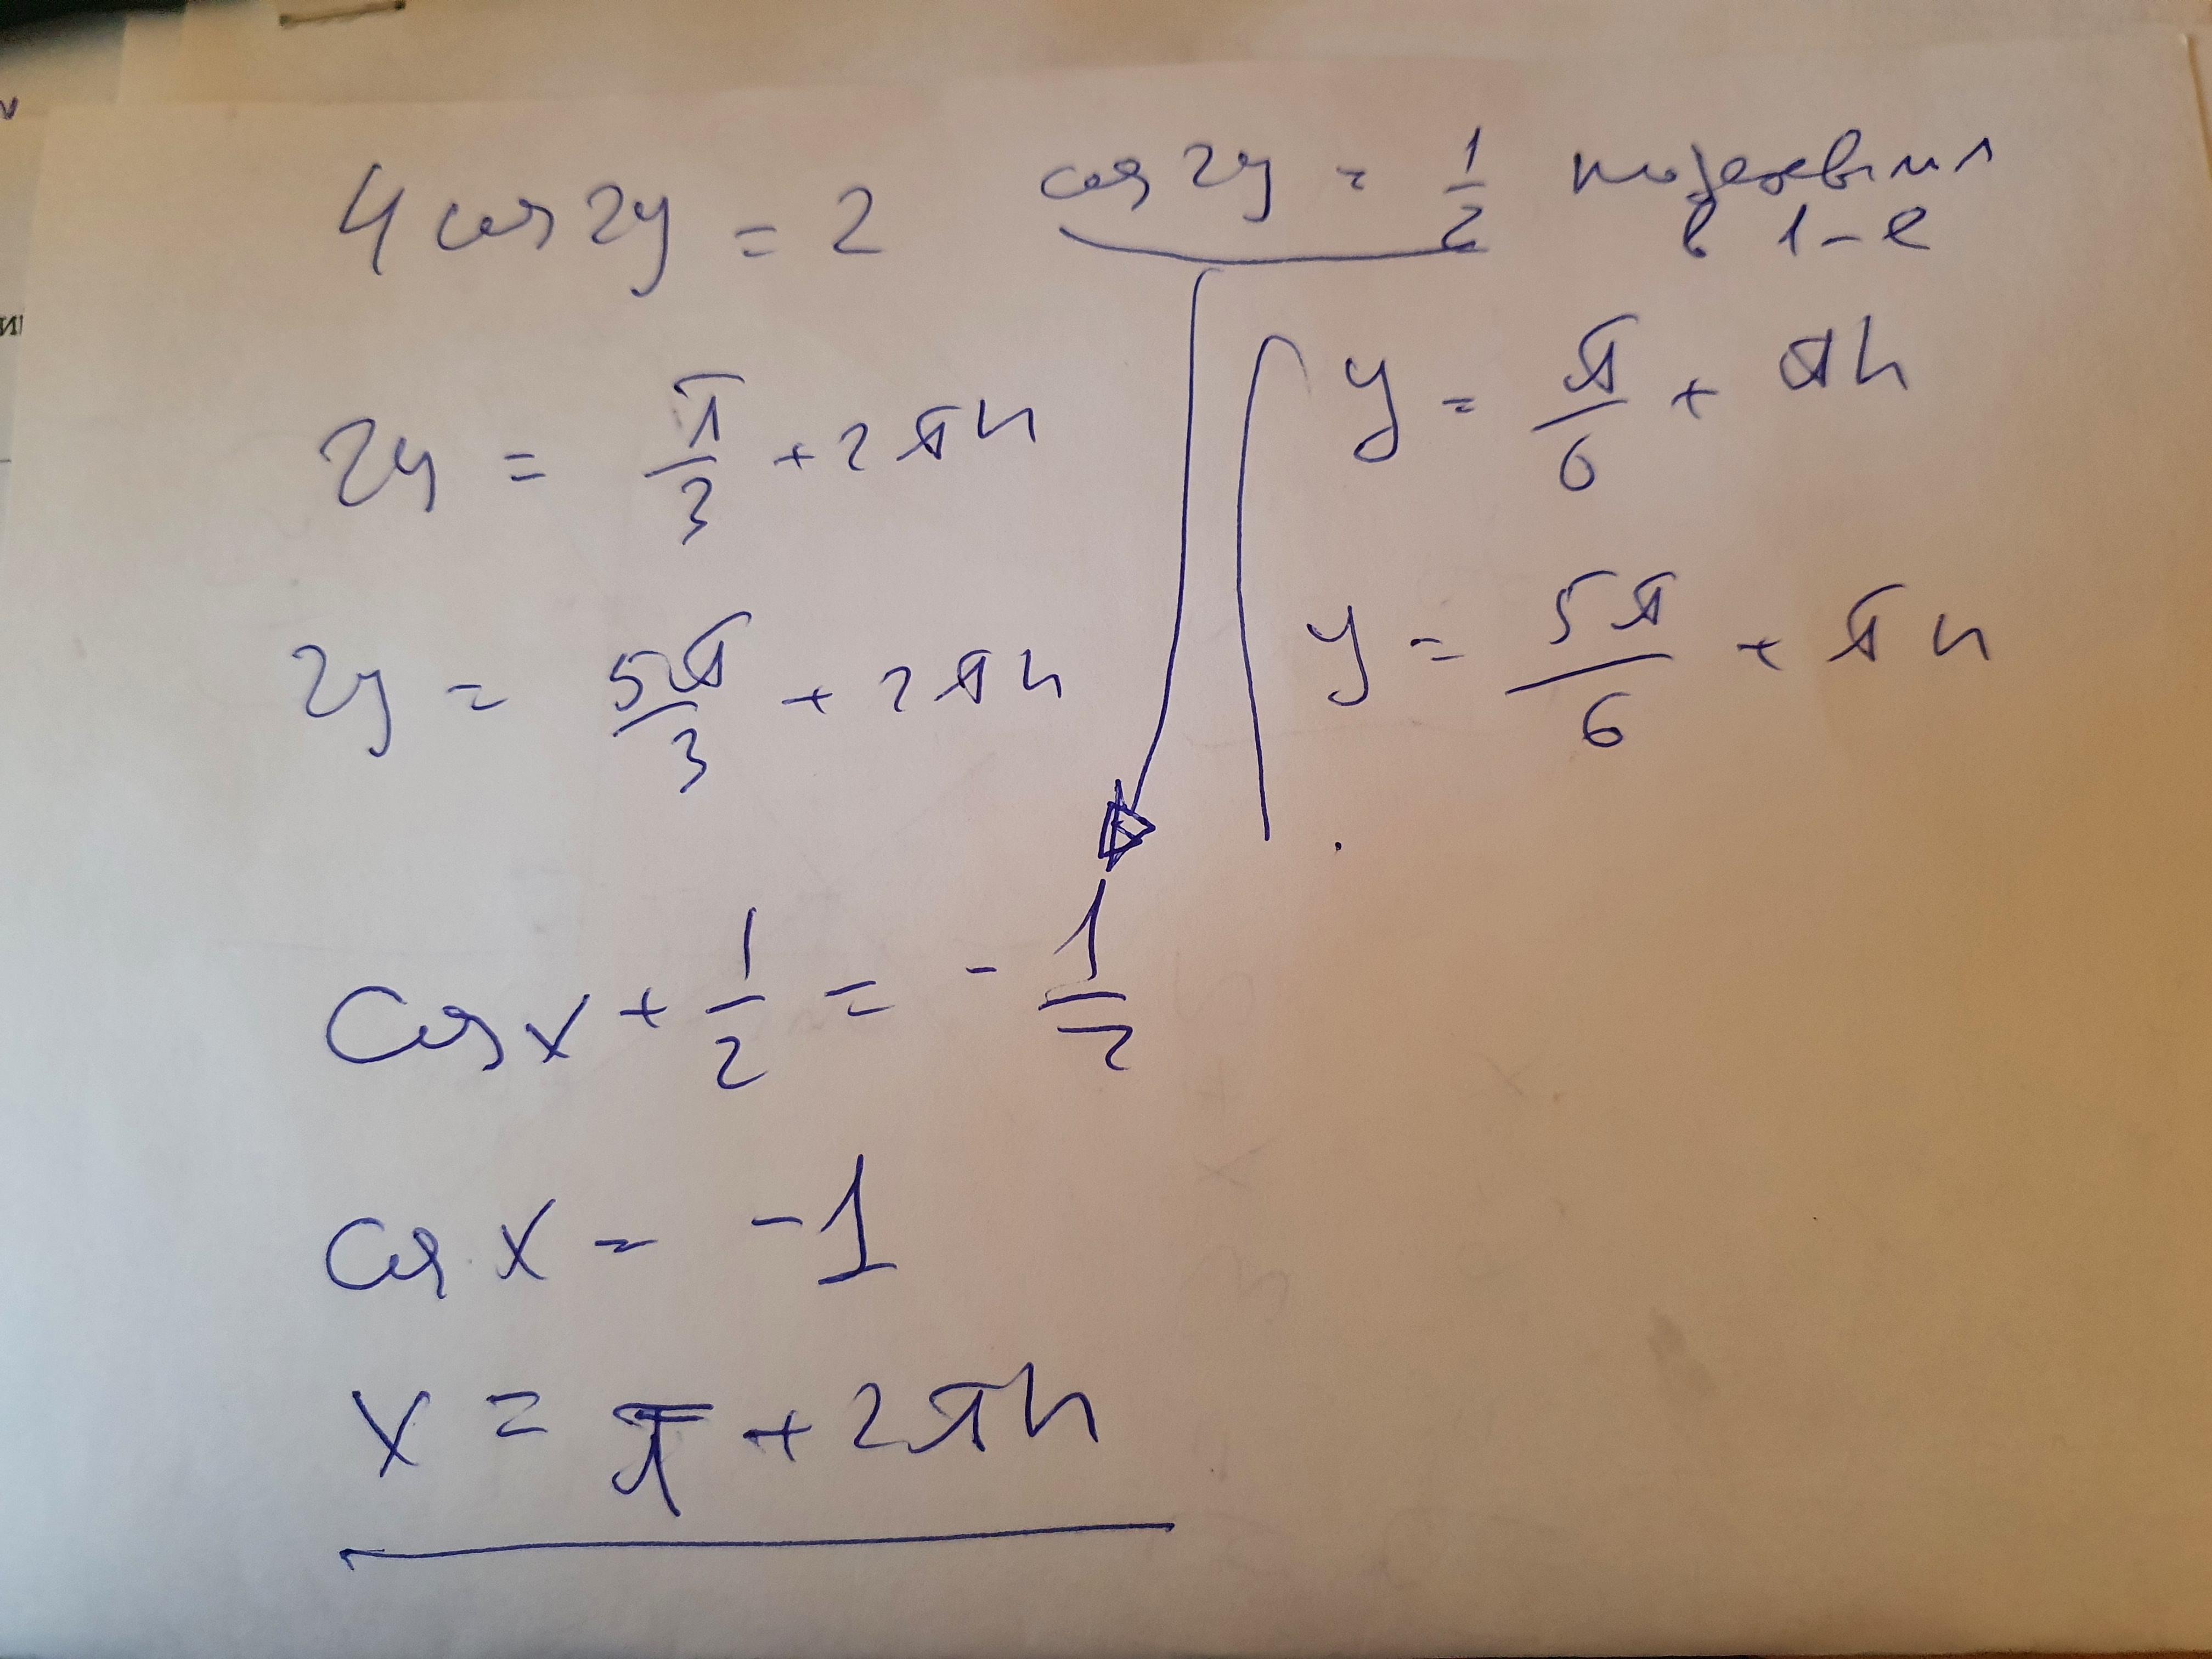 4 cos 2y = 2 cos 2y = 1/2 подставил
в 1-е
2y = π/3 + 2πn
y = π/6 + πn
2y = 5π/3 + 2πn
y = 5π/6 + πn
cos x + 1/2 = - 1/2
cos x = -1
x = π + 2πn